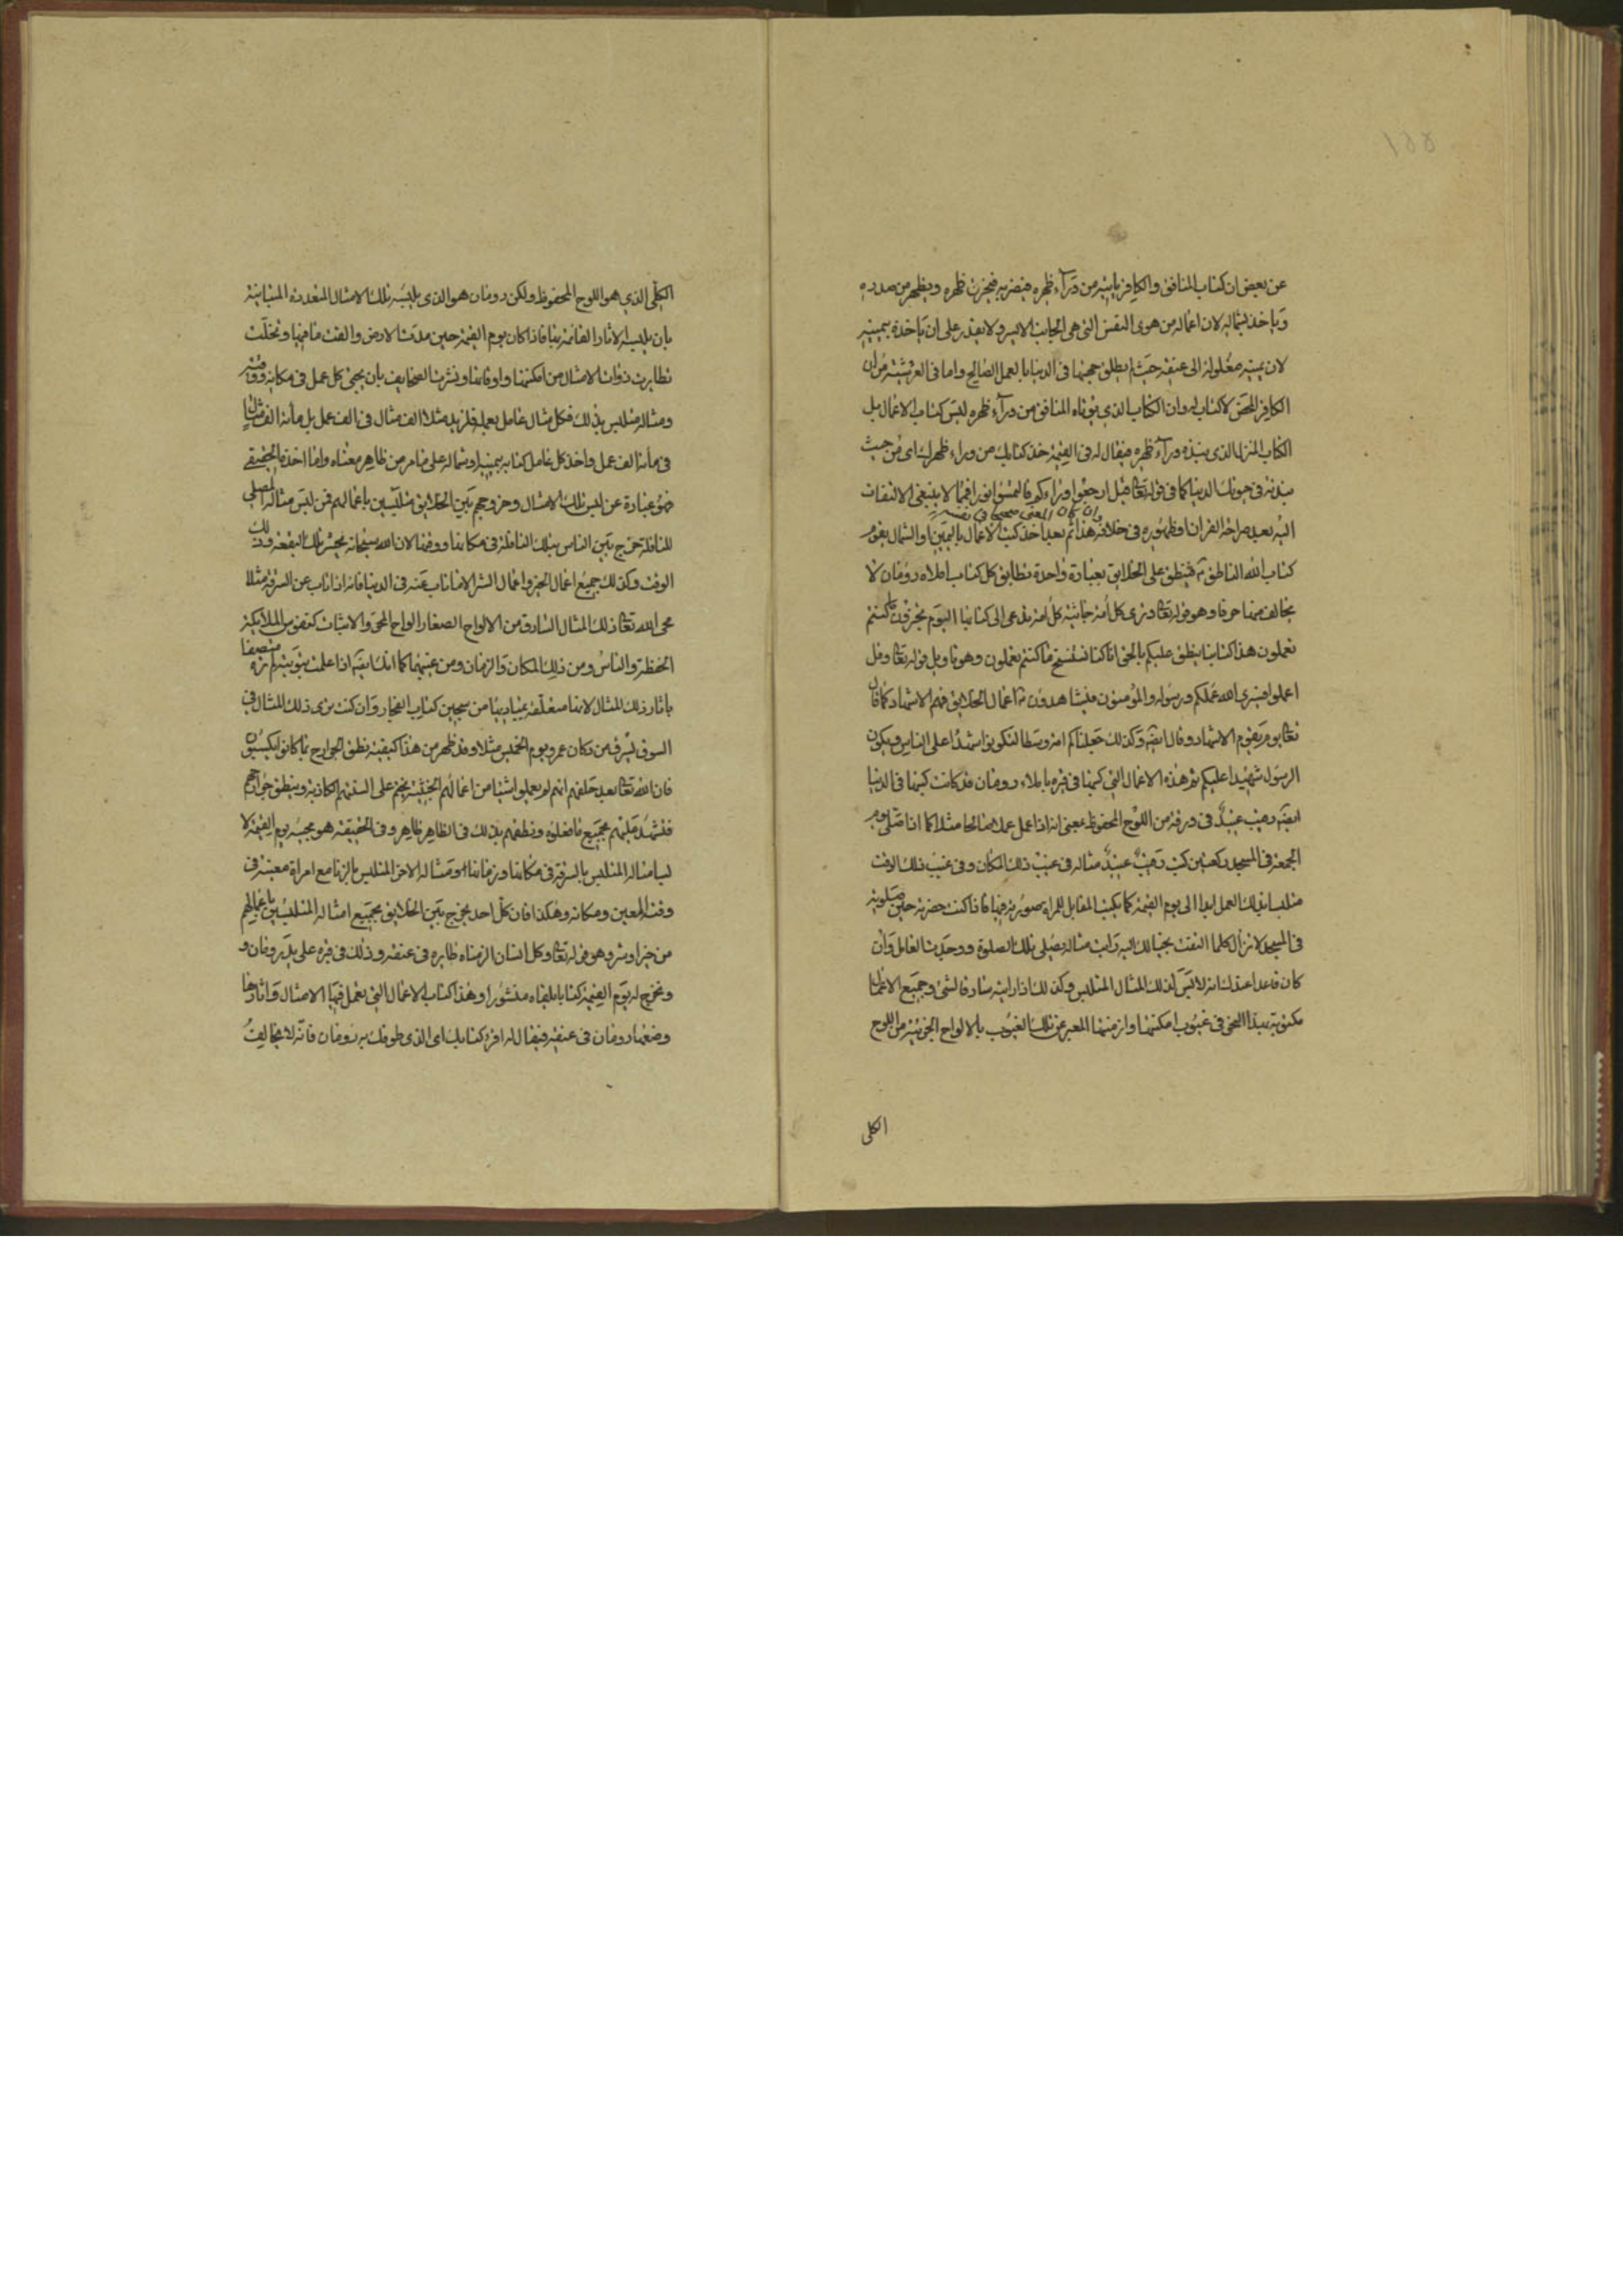 عن بعض ان كتاب المنافق والكافر ياتيه من ورآء ظهره فيضربه فيخرق ظهره ويظهر من صدره
وياخذ بشماله لان اعماله من هوى النفس التى هى الجانب الايسر ولا يقدر على ان ياخذه بيمينه
لان يمينه مغلولة الى عنقه حيث لم يطلق حجتها فى الدنيا بالعمل الصالح واما فى العرشية من ان
الكافر المحض لا كتاب له وان الكتاب الذى يؤتاه المنافق من ورآء ظهره ليس كتاب الاعمال بل
الكتاب المنزل الذى نبذه ورآء ظهره فيقال له فى القيمة خذ كتابك من وراء ظهرك اى من حيث
نبذته فى حيوتك الدنيا كما فى قوله تعالى قيل ارجعوا وراءكم فالتمسوا نورا فمما لا ينبغى الالتفات
وان كان المعنى صحيحا فى نفسه
اليه بعد صراحة القران وظهوره فى خلافه هذا ثم بعد اخذ كتب الاعمال باليمين والشمال يقوم
كتاب الله الناطق فينطق على الخلايق بعبارة واحدة تطابق كل كتاب املاه رومان لا
يخالف منها حرفا وهو قوله تعالى وترى كل امة جاثية كل امة تدعى الى كتابها اليوم تجزون ما كنتم
تعملون هذا كتابنا ينطق عليكم بالحق انا كنا نستنسخ ما كنتم تعملون وهو تاويل قوله تعالى وقل
اعملوا فسيرى الله عملكم ورسوله والمؤمنون فيشاهدون اعمال الخلايق فهم الاشهاد كما قال
تعالى يوم يقوم الاشهاد وقال ايضا وكذلك جعلناكم امة وسطا لتكونوا شهدآء على الناس ويكون
الرسول شهيدا عليكم ثم هذه الاعمال التى كتبها فى قبره باملاء رومان قد كانت كتبها فى الدنيا
ايضا رقيب عتيد فى ورقة من اللوح المحفوظ بمعنى انه اذا عمل عملا صالحا مثلا كما اذا صلى يوم
الجمعة فى المسجد ركعتين كتب رقيب عتيد مثاله فى غيب ذلك المكان وفى غيب ذلك الوقت
متلبسا بذلك العمل ابدا الى يوم القيمة كما يكتب المقابل للمراة صورته فيها فاذا كنت حضرته حين صلوته
فى المسجد لا تزال كلما التفت بخيالك اليه رايت مثاله يصلى تلك الصلوة ووجدت العامل وان
كان قاعدا عندك انه لابس لذلك المثال المتلبس وكذلك اذا رايته سارقا لشئ وجميع الاعمال
مكتوبة بهذا النحو فى غيوب امكنتها وازمنتها المعبر عن تلك الغيوب بالالواح الجزئية من اللوح
الكلى
الكلى الذى هو اللوح المحفوظ ولكن رومان هو الذى يلبسه تلك الامثال المتعددة المتباينة
بان يلبسه الاثار القائمة بها فاذا كان يوم القيمة حين مدت الارض والقت ما فيها وتخلت
تطايرت ذوات الامثال من امكنتها واوقاتها ونشرت الصحايف بان يجئ كل عمل فى مكانه ووقته
ومثاله متلبس بذلك فكل مثال عامل بعمله فلزيد مثلا الف مثال فى الف عمل بل مأة الف مثال
فى مأة الف عمل واخذ كل عامل كتابه بيمينه او بشماله على ما مر من ظاهر معناه واما اخذه الحقيقى
فهو عبارة عن لبس تلك الامثال وخروجهم بين الخلايق متلبسين باعمالهم فمن لبس مثاله المصلى
للنافلة خرج بين الناس بتلك النافلة فى مكانها ووقتها لان الله سبحانه يحشر تلك البقعة وذلك
الوقت وكذلك جميع اعمال الخير واعمال الشر الا ما تاب عنه فى الدنيا فانه اذا تاب عن السرقة مثلا
محى الله تعالى ذلك المثال السارق من الالواح الصغار الواح المحو والاثبات كنفوس الملائكة
الحفظة والناس ومن ذلك المكان والزمان ومن غيبهما كما انك ايضا اذا علمت بتوبته لم تره متصفا
باثار ذلك المثال لانها متعلقة بمباديها من سجين كتاب الفجار وان كنت ترى ذلك المثال فى
السوق يسرق من دكان عمرو يوم الخميس مثلا وقد ظهر من هذا كيفية نطق الجوارح بما كانوا يكسبون
فان الله تعالى بعد حلفهم انهم لم يعملوا شيئا من اعمالهم الخبيثة يختم على السنتهم الكاذبة وينطق جوارحهم
فتشهد عليهم بجميع ما فعلوه ونطقهم بذلك فى الظاهر ظاهر وفى الحقيقة هو مجيئه يوم القيمة لا
لبسا مثاله المتلبس بالسرقة فى مكانها وزمانها ومثاله الاخر المتلبس بالزنا مع امراة معينة فى
وقته المعين ومكانه وهكذا فان كل احد يخرج بين الخلايق بجميع امثاله المتلبسين باعمالهم
من خير او شر وهو قوله تعالى وكل انسان الزمناه طايره فى عنقه وذلك فى قبره على يد رومان و
ونخرج له يوم القيمة كتابا يلقاه منشورا وهذا كتاب الاعمال التى يعمل فيها الامثال واثارها
وضعها رومان فى عنقه فيقال له اقرء كتابك اى الذى طوقك به رومان فانه لا يخالف